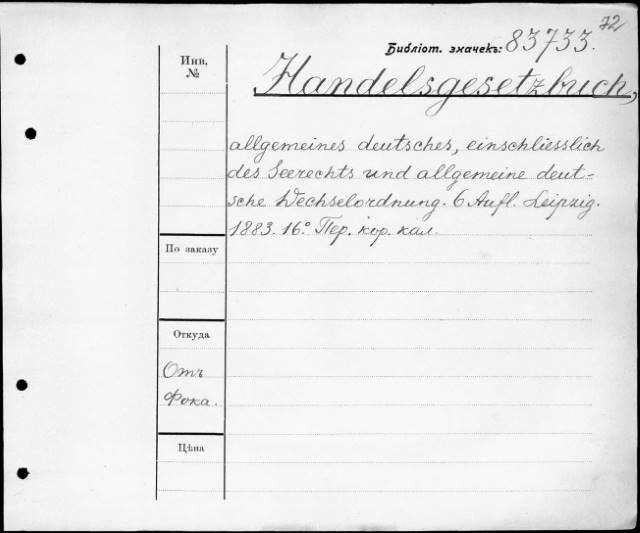 72
Библіот. значекъ: 83733.
Инв. №
Handelsgesetzbuch,
allgemeines deutsches, einschliesslich
des Seerechts und allgemeine deut-
sche Wechselordnung. 6 Aufl. Leipzig.
1883. 16° Пер. кор. кал.
По заказу
Откуда
Отъ
Фока.
Цѣна